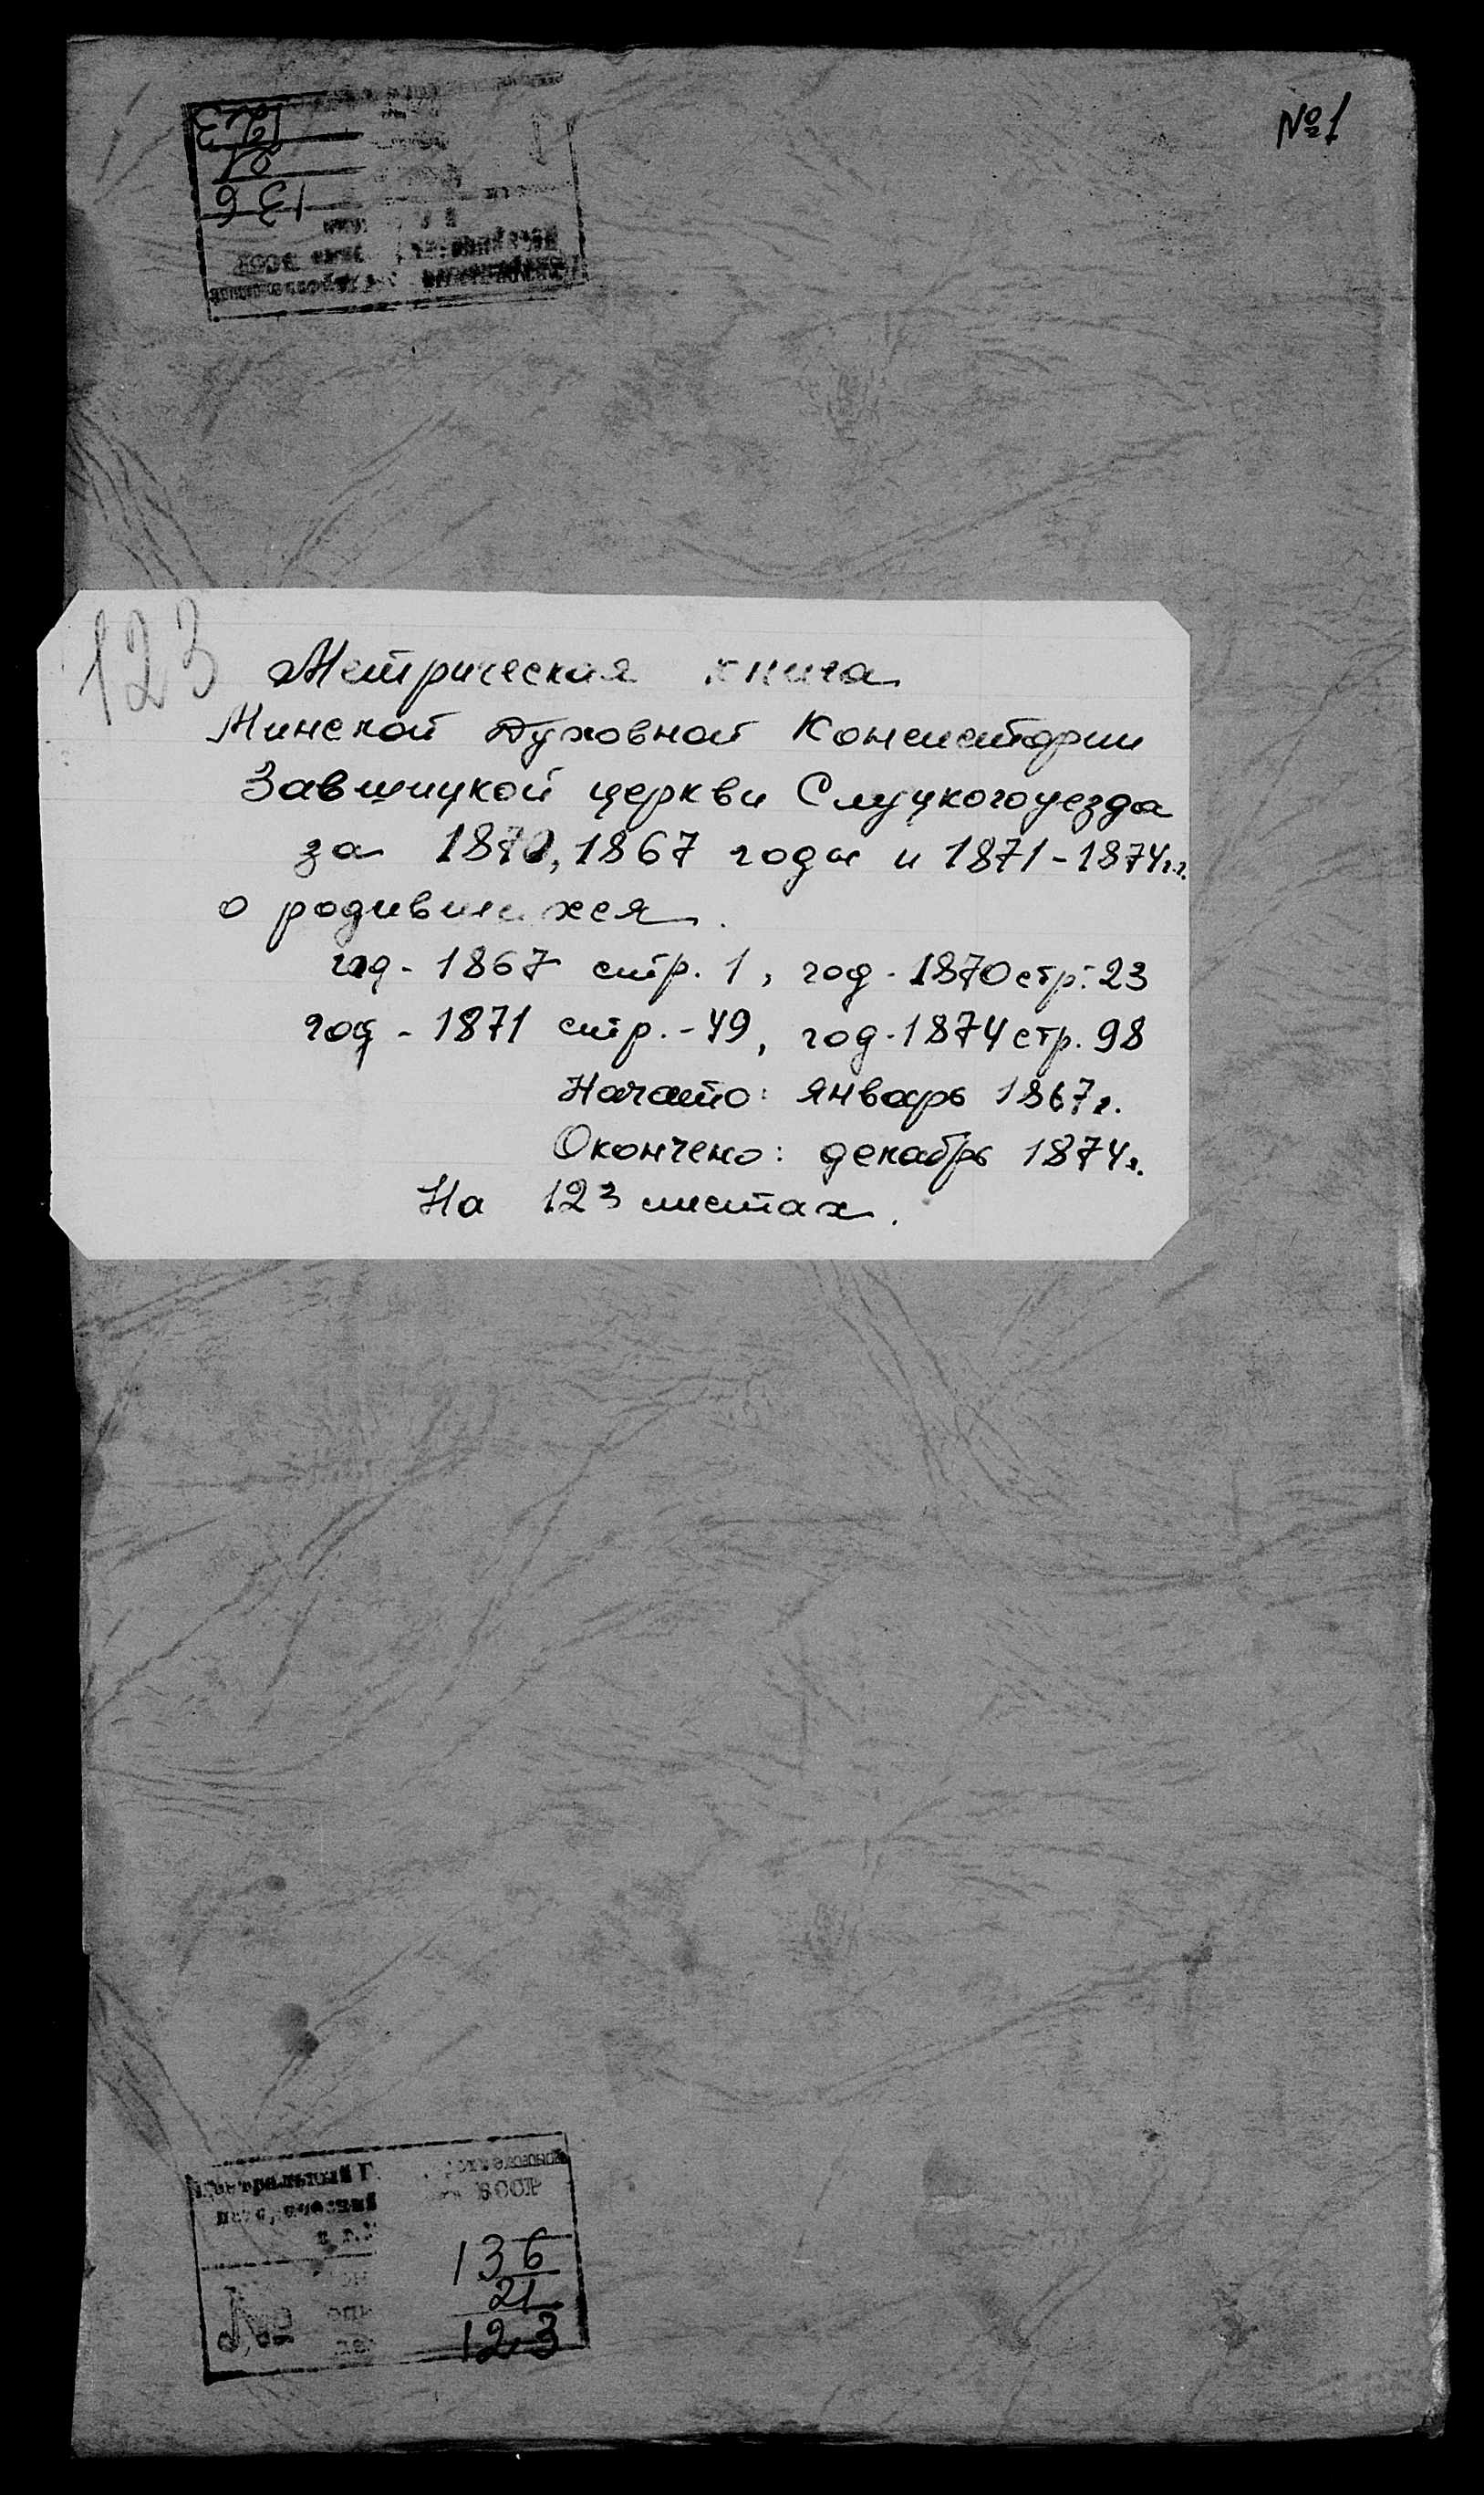 №1
123
Метрическая книга
Минской Духовной Консистории
Завшицкой церкви Слуцкого уезда
за 1870, 1867 годы и 1871-1874г.г.
о родившихся.
год - 1867 стр. 1, год - 1870 стр. 23
год - 1871 стр. - 49, год - 1874 стр. 98
Начато: январь 1867 г.
Окончено: декабрь 1874 г.
На 123 листах.
Центральный
БССР
136
21
№ 123